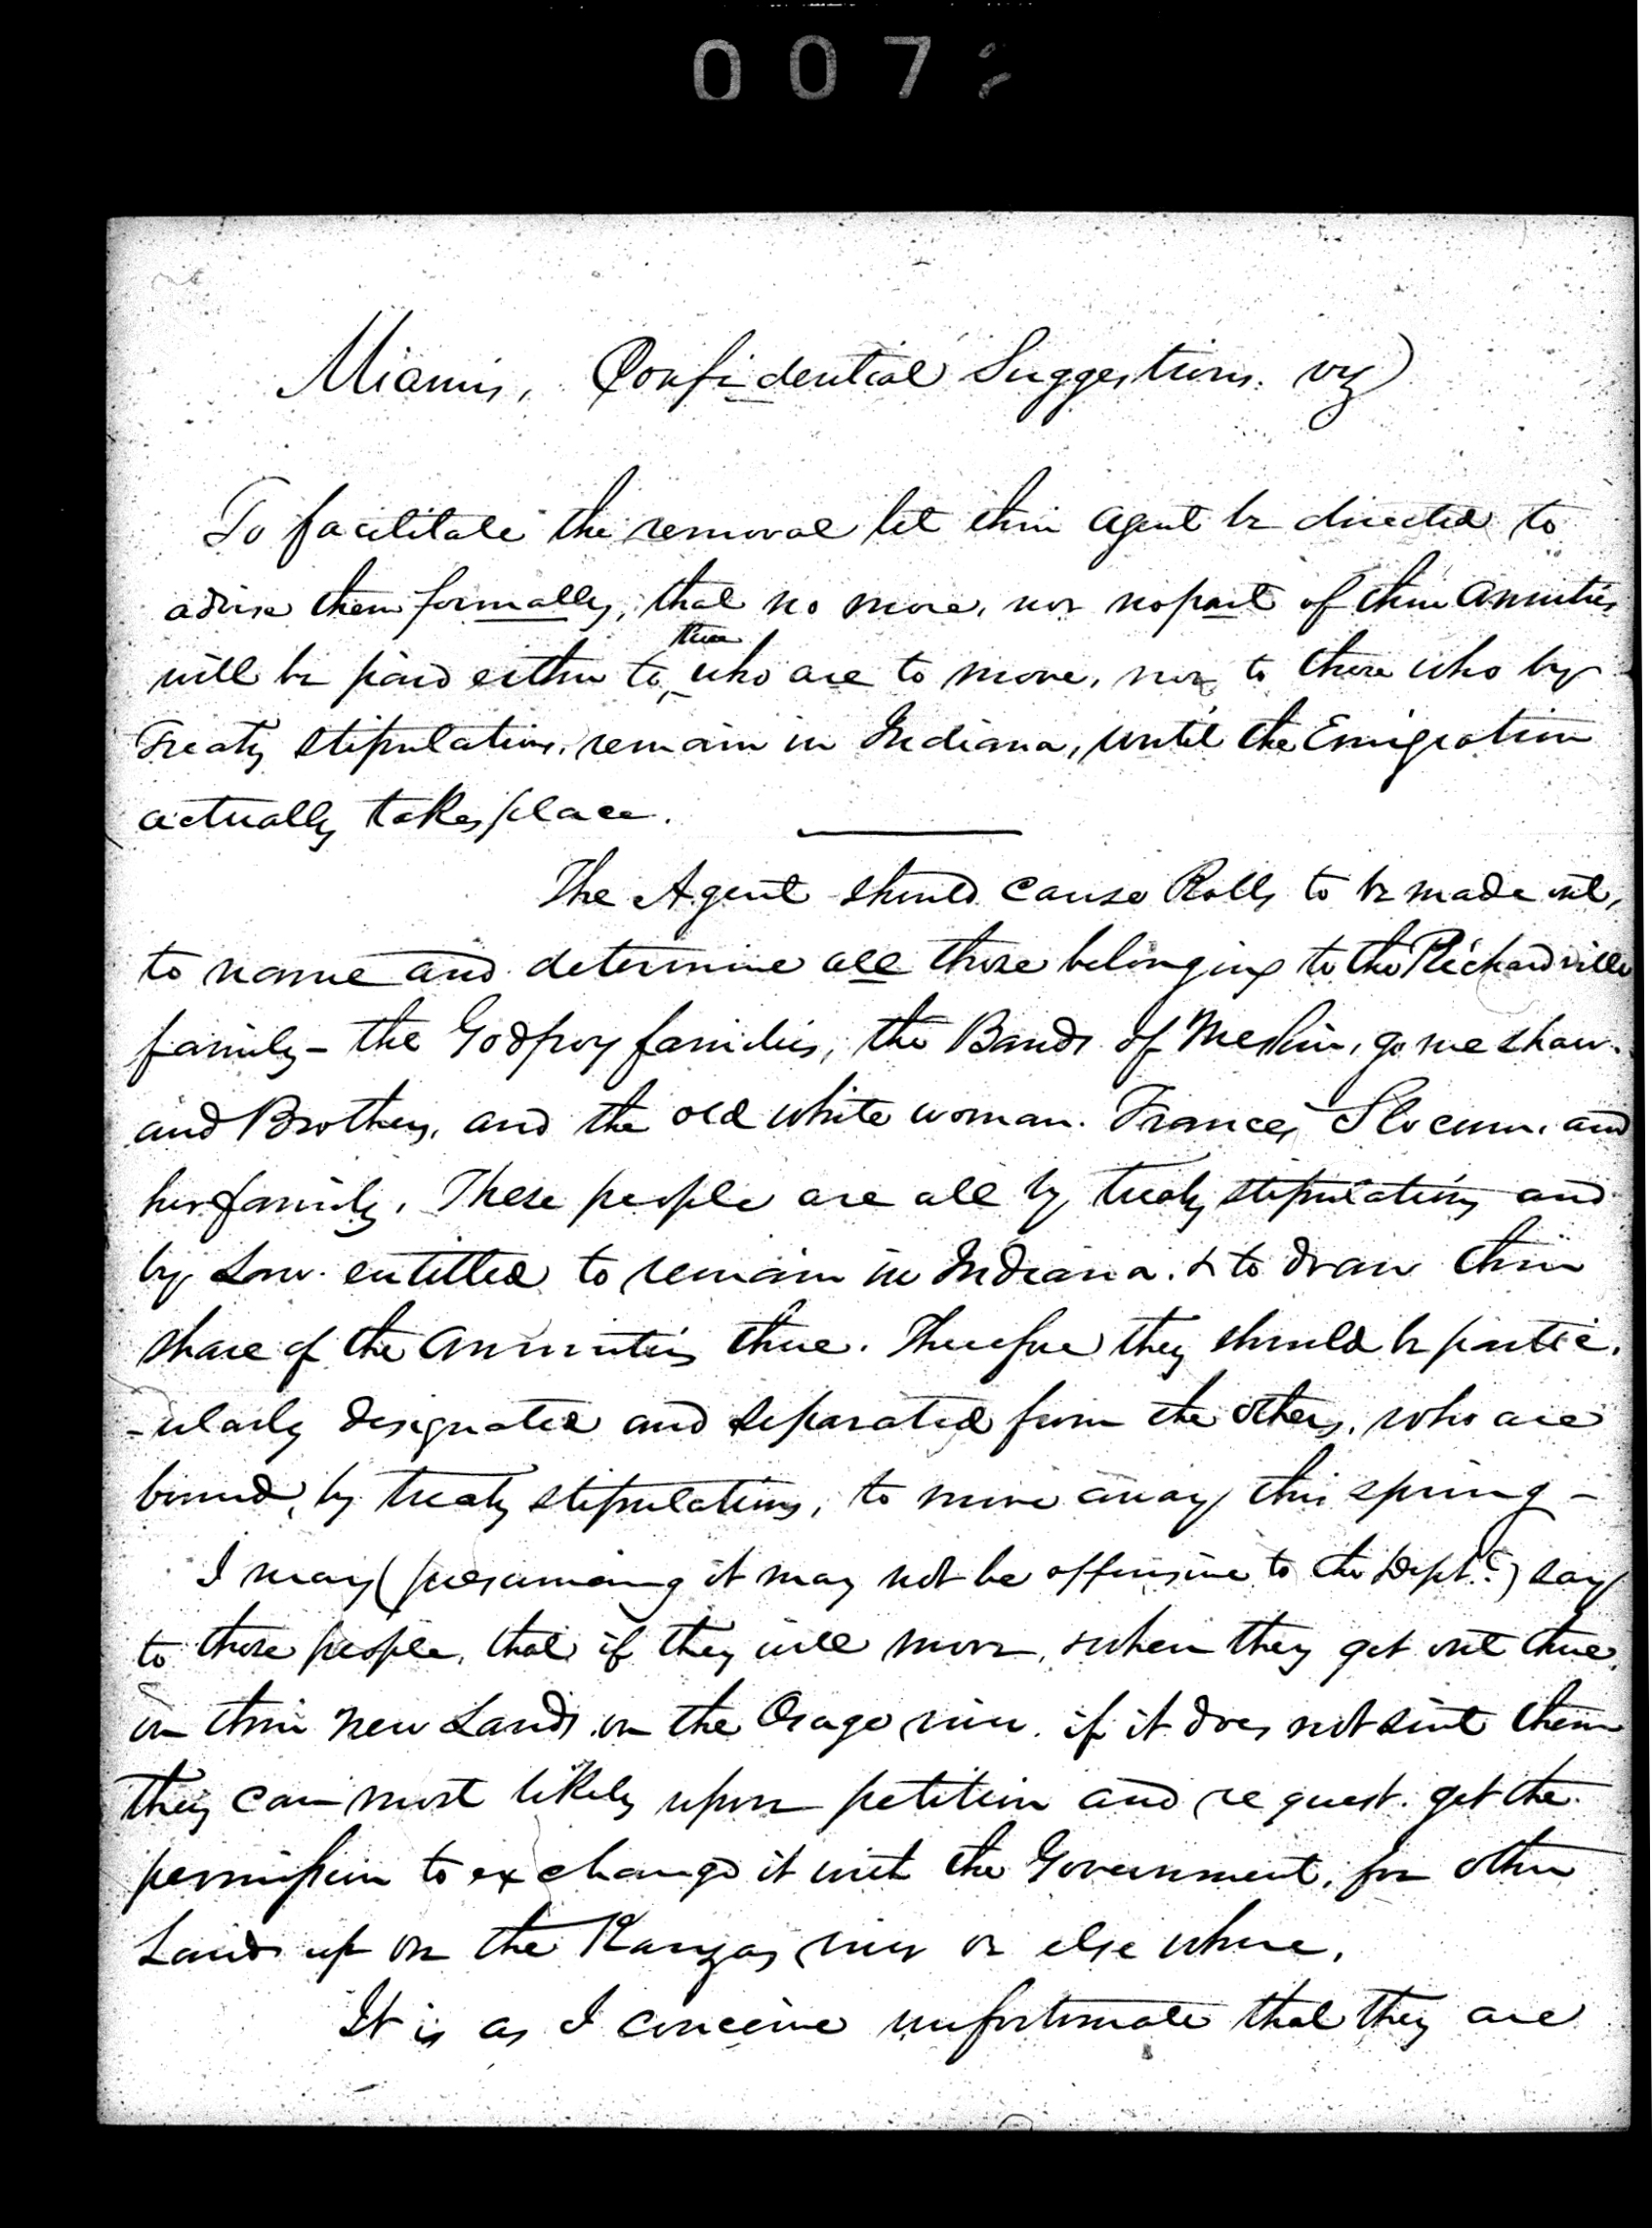 007
Miamis, Confidential Suggestions. viz)
To facilitate the removal let their agent be directed to
advise them formally, that no more, nor no part of their annuities
those
will be paid either to who are to move, nor to those who by
Treaty stipulations, remain in Indiana, until the Emigration
actually takes place.
The Agent should cause Rolls to be made out,
to name and determine all those belonging to the Richardville
family - the Godfroy families, the Bands of Meshin, go me shaw.
and Brothers, and the old white woman. Frances Slocum. and
her family. These people are all by treaty stipulations and
by Law. entitled to remain in Indiana. & to draw their
share of the annuities there. Therefore they should be partic.
-ularly designated and separated from the others, who are
bound, by treaty stipulations, to move away this spring -
I may (presuming it may not be offensive to the Dept.) say
to those people, that if they will move, & when they get out there,
on their new Lands on the Osage river. if it does not suit them
they can most likely upon petition and request. get the
permission to exchange it with the Government, for other
Lands up on the Kanzas river or else where.
It is as I conceive unfortunate that they are